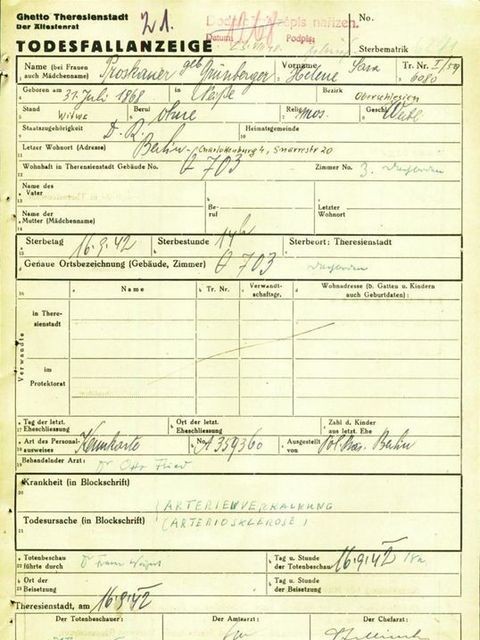 Ghetto Theresienstadt
Der Ältestenrat
21.
Dodatečný zápis nařízen.
Datum Podpis:
No.
TODESFALLANZEIGE
Sterbematrik
Name (bei Frauen auch Mädchenname) Proskauer geb Grünberger
Vorname Helene Sara
Tr. Nr. I/59 6080
Geboren am 31. Juli 1868 in Neiße Bezirk Oberschlesien
Stand Witwe Beruf ohne Relig. mos. Geschl. Weibl
Staatszugehörigkeit D. R. Heimatsgemeinde
Letzer Wohnort (Adresse) Berlin - Charlottenburg 4, 20
Wohnhaft in Theresienstadt Gebäude No. Q 703 Zimmer No. 3.
Name des Vater
Beruf
Letzter Wohnort
Name der Mutter (Mädchenname)
Sterbetag 16.9.42 Sterbestunde 14h Sterbeort: Theresienstadt
Genaue Ortsbezeichnung (Gebäude, Zimmer) Q 703
Name Tr. Nr. Verwandtschaftsgr. Wohnadresse (b. Gatten u. Kindern auch Geburtdaten):
Verwandte
in Theresienstadt
im Protektorat
Tag der letzt. Eheschliessung Ort der letzt. Eheschliessung Zahl d. Kinder aus letzt. Ehe
Art des Personalausweises Kennkarte No. A 359360 Ausgestellt von Pol. Berlin
Behandelnder Arzt: Dr Otto Fried
Krankheit (in Blockschrift)
ARTERIENVERKALKUNG
Todesursache (in Blockschrift) (ARTERIOSKLEROSE)
Totenbeschau führte durch Dr Tag u. Stunde der Totenbeschau 16.9.42 18h
Ort der Beisetzung Tag u. Stunde der Beisetzung
Theresienstadt, am 16.9.42
Der Totenbeschauer: Der Amtsarzt: Der Chefarzt: